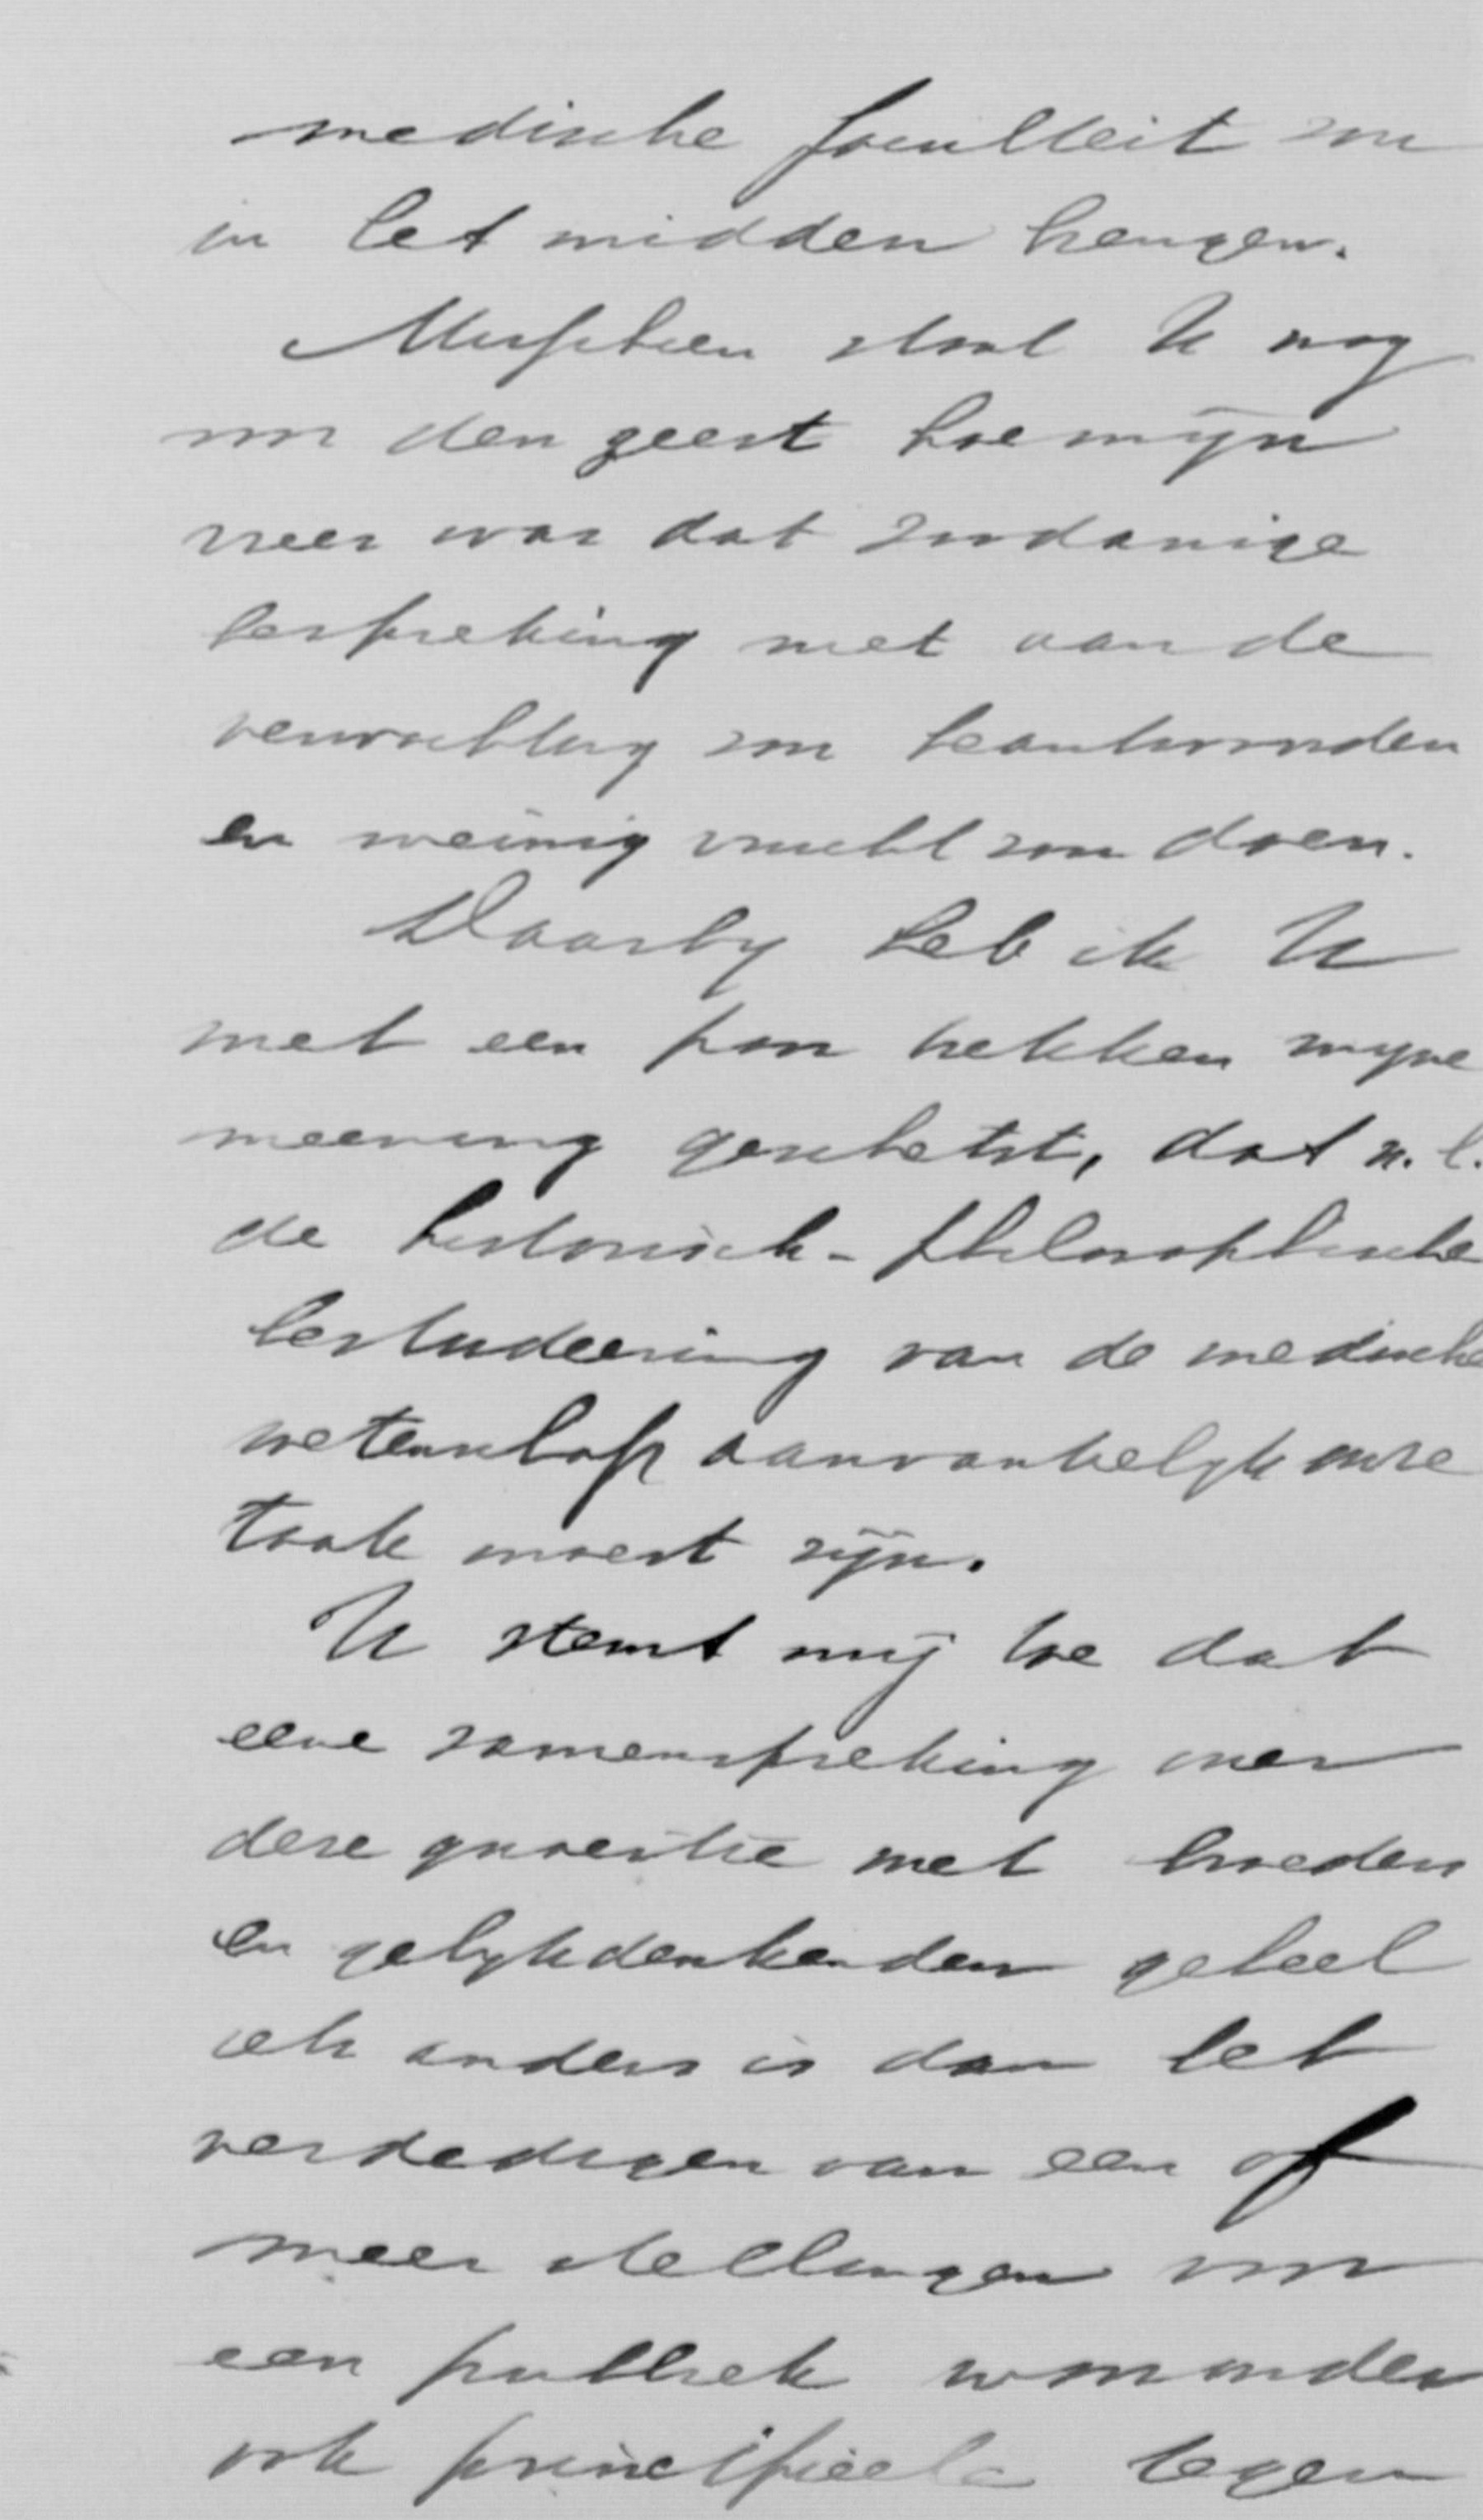 medische faculteit zou
in het midden brengen.
Misschien staat U nog
voor den geest hoe mijn
vrees was dat zoodanige
bespreking niet aan de
verwachting zou beantwoorden
en weinig vrucht zou doen.
Daarby heb ik U
met een paar trekken myne
meening geschetst, dat n.l.
de historisch-philosophische
bestudeering van de medische
wetenschap aanvankelyk onze
taak moest zijn.
U stemt mij toe dat
eene samenspreking over
deze quaestie met broeders
en gelykdenkenden geheel
iets anders is dan het
verdedigen van een of
meer stellingen voor
een publiek waaronder
ook principieele tegen